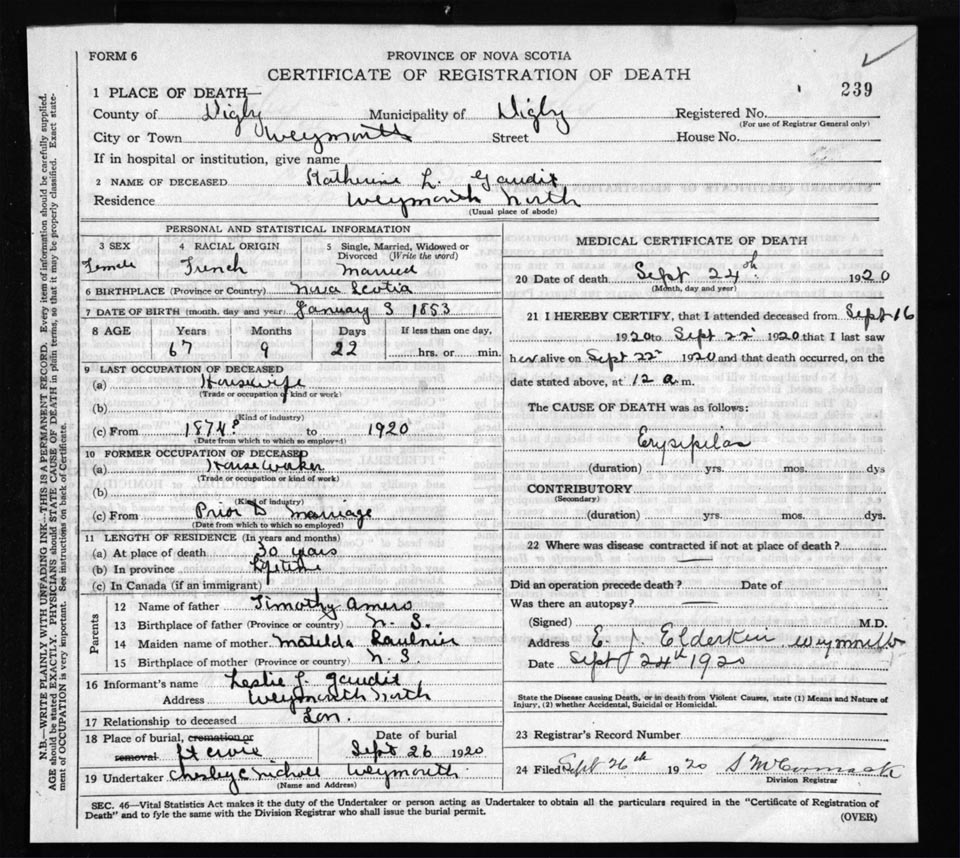 FORM 6
PROVINCE OF NOVA SCOTIA
CERTIFICATE OF REGISTRATION OF DEATH
239
1 PLACE OF DEATH—
County of Digby Municipality of Digby Registered No.
(For use of Registrar General only)
City or Town Weymouth Street House No.
If in hospital or institution, give name
2 NAME OF DECEASED Katherine L. Gaudit
Residence Weymouth North
(Usual place of abode)
PERSONAL AND STATISTICAL INFORMATION
3 SEX 4 RACIAL ORIGIN 5 Single, Married, Widowed or
Divorced (Write the word)
Female French Married
6 BIRTHPLACE (Province or Country) Nova Scotia
7 DATE OF BIRTH (month, day and year) January 3 1853
8 AGE Years Months Days If less than one day,
67 9 22 hrs. or min.
9 LAST OCCUPATION OF DECEASED
(a) Housewife
(Trade or occupation or kind or work)
(b)
(Kind of industry)
(c) From 1874? to 1920
(Date from which to which so employed)
10 FORMER OCCUPATION OF DECEASED
(a) House worker
(Trade or occupation or kind of work)
(b)
(Kind of industry)
(c) From Prior to marriage
(Date from which to which so employed)
11 LENGTH OF RESIDENCE (In years and months)
(a) At place of death 30 years
(b) In province Lifetime
(c) In Canada (if an immigrant)
Parents
12 Name of father Timothy Amero
13 Birthplace of father (Province or country) N. S.
14 Maiden name of mother Matilda Saulnier
15 Birthplace of mother (Province or country) N. S.
16 Informant's name Leslie J. Gaudit
Address Weymouth North
17 Relationship to deceased Son.
18 Place of burial, cremation or removal St Croix
Date of burial Sept 26 1920
19 Undertaker Chesley C Nichol Weymouth
(Name and Address)
MEDICAL CERTIFICATE OF DEATH
20 Date of death Sept 24th 1920
(Month, day and year)
21 I HEREBY CERTIFY, that I attended deceased from Sept 16
1920 to Sept 22 1920 that I last saw
her alive on Sept 22 1920 and that death occurred, on the
date stated above, at 12 a m.
The CAUSE OF DEATH was as follows:
Erysipilas
(duration) yrs. mos. dys
CONTRIBUTORY
(Secondary)
(duration) yrs. mos. dys.
22 Where was disease contracted if not at place of death?
Did an operation precede death? Date of
Was there an autopsy?
(Signed) M.D.
E. J. Elderkin
Address Weymouth
Date Sept 24th 1920
State the Disease causing Death, or in death from Violent Causes, state (1) Means and Nature of
Injury, (2) whether Accidental, Suicidal or Homicidal.
23 Registrar's Record Number
24 Filed Sept 26th 1920 S McCormack
Division Registrar
SEC. 46—Vital Statistics Act makes it the duty of the Undertaker or person acting as Undertaker to obtain all the particulars required in the "Certificate of Registration of
Death" and to fyle the same with the Division Registrar who shall issue the burial permit.
(OVER)
N.B.—WRITE PLAINLY WITH UNFADING INK—THIS IS A PERMANENT RECORD. Every item of information should be carefully supplied.
AGE should be stated EXACTLY. PHYSICIANS should STATE CAUSE OF DEATH in plain terms, so that it may be properly classified. Exact state-
ment of OCCUPATION is very important. See instructions on back of Certificate.